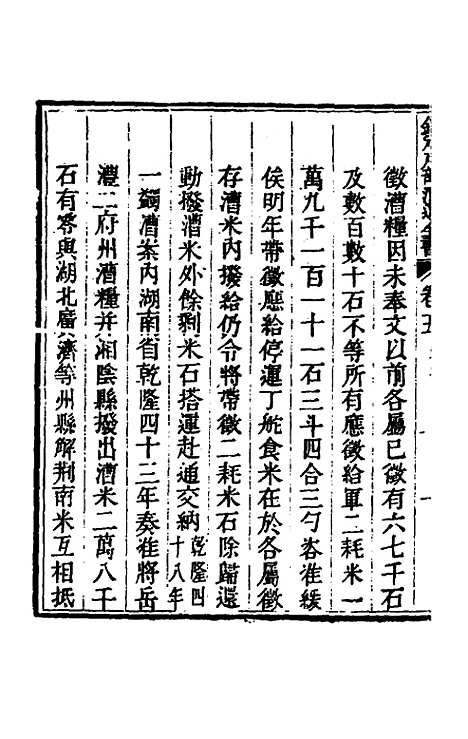 徵漕糧因未奉文以前各屬已徵有六七千石
及數百數十石不等所有應徵給軍二耗米一
萬九千一百一十一石三斗四合三勺咨准緩
俟明年帶徵應給停運丁舵食米在於各屬徵
存漕米內撥給仍令將帶徵二耗米石除歸還
動撥漕米外餘剩米石搭運赴通交納乾隆四十八年
一蠲漕案內湖南省乾隆四十三年奏准將岳
澧二府州漕糧并湘陰縣撥出漕米二萬八千
石有零與湖北廣濟等州縣解荆南米互相抵